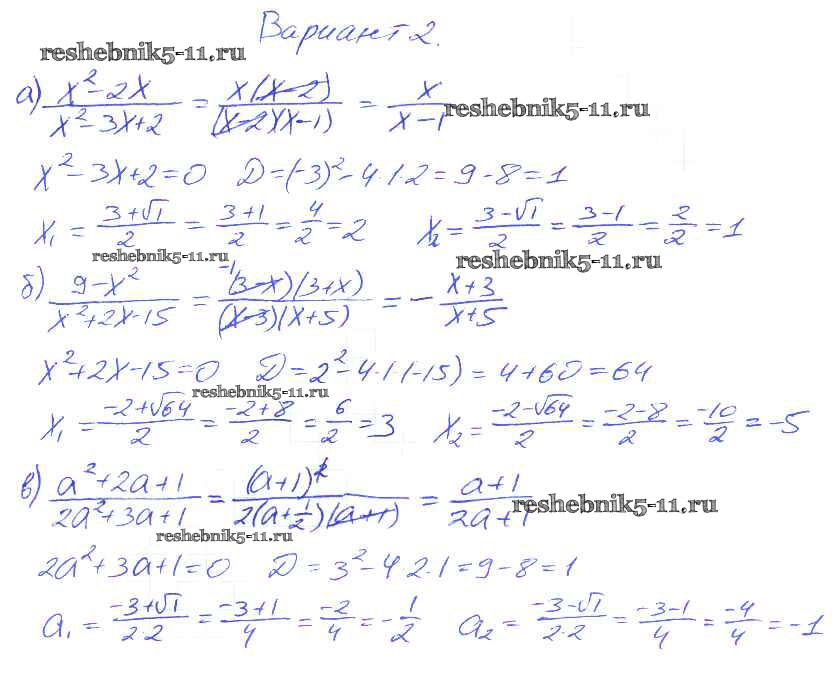 Вариант 2.
reshebnik5-11.ru
а) (x² - 2x)/(x² - 3x + 2) = (x(x-2))/((x-2)(x-1)) = x/(x-1)
reshebnik5-11.ru
x² - 3x + 2 = 0 D = (-3)² - 4·1·2 = 9 - 8 = 1
x₁ = (3+√1)/2 = (3+1)/2 = 4/2 = 2 x₂ = (3-√1)/2 = (3-1)/2 = 2/2 = 1
reshebnik5-11.ru
reshebnik5-11.ru
б) (9-x²)/(x²+2x-15) = (⁻¹(3-x)(3+x))/((x-3)(x+5)) = - (x+3)/(x+5)
x² + 2x - 15 = 0 D = 2² - 4·1·(-15) = 4 + 60 = 64
reshebnik5-11.ru
x₁ = (-2+√64)/2 = (-2+8)/2 = 6/2 = 3 x₂ = (-2-√64)/2 = (-2-8)/2 = -10/2 = -5
в) (a²+2a+1)/(2a²+3a+1) = (a+1)²/(2(a+1/2)(a+1)) = (a+1)/(2a+1)
reshebnik5-11.ru
reshebnik5-11.ru
2a² + 3a + 1 = 0 D = 3² - 4·2·1 = 9 - 8 = 1
a₁ = (-3+√1)/(2·2) = (-3+1)/4 = -2/4 = -1/2 a₂ = (-3-√1)/(2·2) = (-3-1)/4 = -4/4 = -1